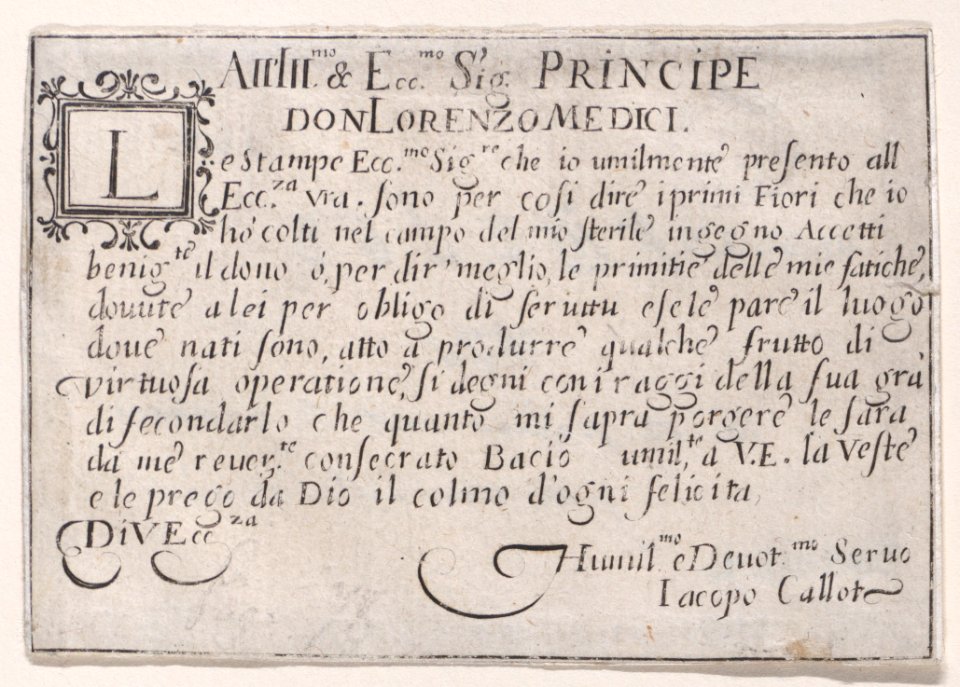 All Ill.mo & Ecc.mo Sig.r PRINCIPE
DON LORENZO MEDICI.
Le Stampe Ecc.mo Sig.re che io umilmente presento all
Ecc.za vra. sono per cosi dire i primi Fiori che io
hò colti nel campo del mio sterile ingegno Accetti
benig.te il dono ò, per dir' meglio, le primitie delle mie fatiche,
douute a lei per obligo di seruitu e se le pare il luogo
doue nati sono, atto a produrre qualche frutto di
virtuosa operatione, si degni con i raggi della sua gra
di fecondarlo che quanto mi saprà porgere le sarà
da me reuer.te consecrato Bacio umil.te a V.E. la Veste
e le prego da Dio il colmo d'ogni felicita,
Di V Ecc.za
Humil.mo e Deuot.mo Seruo
Iacopo Callot